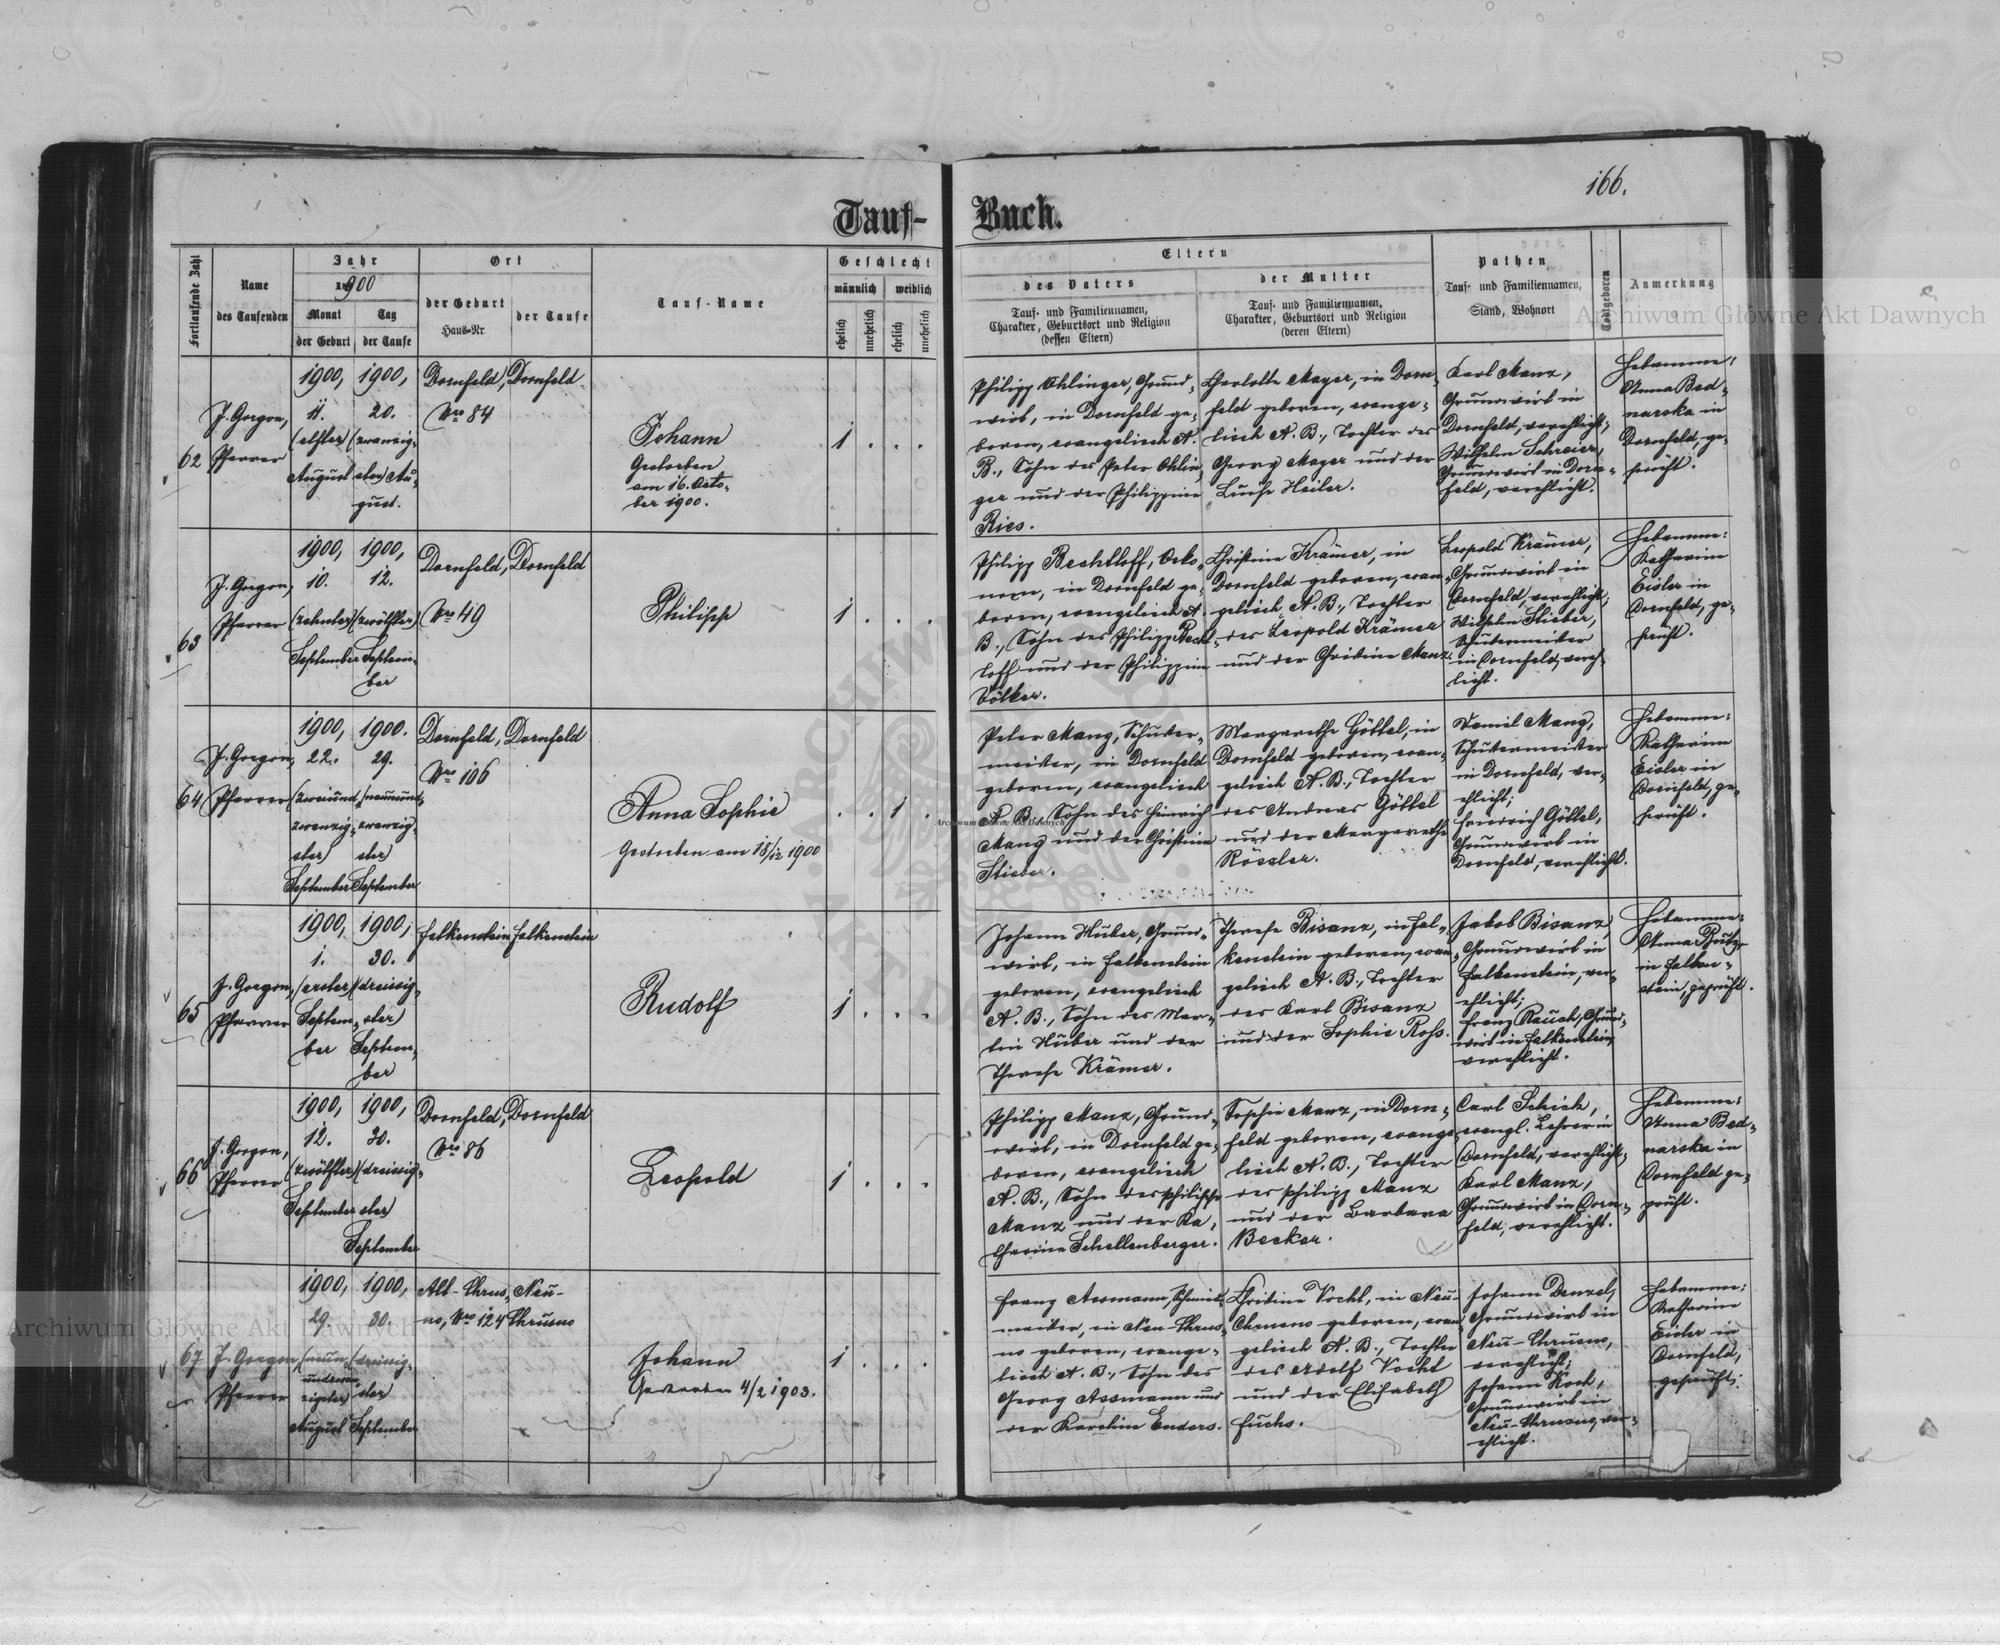 166.
Tauf-Buch.
Fortlaufende Zahl
Name
des Taufenden
Jahr
1900
Monat
der Geburt
Tag
der Taufe
Ort
der Geburt
Haus-Nr
der Taufe
Tauf-Name
Geschlecht
männlich
weiblich
ehelich
unehelich
ehelich
unehelich
Eltern
des Vaters
Tauf- und Familiennamen,
Charakter, Geburtsort und Religion
(dessen Eltern)
der Mutter
Tauf- und Familiennamen,
Charakter, Geburtsort und Religion
(deren Eltern)
Pathen
Tauf- und Familiennamen,
Stand, Wohnort
Todtgeboren
Anmerkung
62
J. Gorgon,
Pfarrer
1900,
11.
(elfter)
August
1900,
20.
(zwanzig-
ster) Au-
gust.
Dornfeld,
Nro 84
Dornfeld
Johann
Gestorben
am 16. Octo-
ber 1900.
1 . . .
Philipp Ohlinger, Grund-
wirt, in Dornfeld ge-
boren, evangelisch A.
B., Sohn des Peter Ohlin-
ger und der Philippine
Ries.
Charlotte Mayer, in Dorn-
feld geboren, evange-
lisch A. B., Tochter des
Georg Mayer und der
Luise Heiler.
Karl Manz,
Grundwirt in
Dornfeld, verehlicht;
Wilhelm Schreier,
Grundwirt in Dorn-
feld, verehlicht.
Hebamme:
Anna Bed-
narska in
Dornfeld, ge-
prüft.
63
J. Gorgon,
Pfarrer
1900,
10.
(zehnter)
September
1900,
12.
(zwölfter)
Septem-
ber
Dornfeld,
Nro 49
Dornfeld
Philipp
1 . . .
Philipp Bechtloff, Oeko-
nom, in Dornfeld ge-
boren, evangelisch A.
B., Sohn des Philipp Becht-
loff und der Philippine
Völker.
Christine Krämer, in
Dornfeld geboren, evan-
gelisch A. B., Tochter
des Leopold Krämer
und der Christine Manz.
Leopold Krämer,
Grundwirt in
Dornfeld, verehlicht;
Wilhelm Stieber,
Schustermeister
in Dornfeld, vereh-
licht.
Hebamme:
Katharine
Eisler in
Dornfeld, ge-
prüft.
64
J. Gorgon,
Pfarrer
1900,
22.
(zweiund-
zwanzig-
ster)
September
1900.
29.
(neunund-
zwanzig-
ster)
September
Dornfeld,
Nro 106
Dornfeld
Anna Sophie
Gestorben am 18/12 1900
. . 1 .
Peter Mang, Schuster-
meister, in Dornfeld
geboren, evangelisch
A. B., Sohn des Heinrich
Mang und der Christine
Stieber.
Margarethe Göttel, in
Dornfeld geboren, evan-
gelisch A. B., Tochter
des Andreas Göttel
und der Margarethe
Rössler.
Daniel Mang,
Schustermeister
in Dornfeld, ver-
ehlicht;
Friedrich Göttel,
Grundwirt in
Dornfeld, verehlicht.
Hebamme:
Katharine
Eisler in
Dornfeld, ge-
prüft.
65
J. Gorgon,
Pfarrer
1900,
1.
(erster)
Septem-
ber
1900,
30.
(dreissig-
ster)
Septem-
ber
Falkenstein
Falkenstein
Rudolf
1 . . .
Johann Huber, Grund-
wirt, in Falkenstein
geboren, evangelisch
A. B., Sohn des Mar-
tin Huber und der
Therese Krämer.
Therese Bisanz, in Fal-
kenstein geboren, evan-
gelisch A. B., Tochter
des Karl Bisanz
und der Sophie Roß.
Jakob Bisanz,
Grundwirt in
Falkenstein, ver-
ehlicht;
Franz Rauch, Grund-
wirt in Falkenstein,
verehlicht.
Hebamme:
Anna
in Falken-
stein, geprüft.
66
J. Gorgon,
Pfarrer
1900,
12.
(zwölfter)
September
1900,
30.
(dreissig-
ster)
September
Dornfeld,
Nro 86
Dornfeld
Leopold
1 . . .
Philipp Manz, Grund-
wirt, in Dornfeld ge-
boren, evangelisch
A. B., Sohn des Philipp
Manz und der Ka-
tharine Schellenberger.
Sophie Manz, in Dorn-
feld geboren, evange-
lisch A. B., Tochter
des Philipp Manz
und der Barbara
Becker.
Carl Schick,
evangl. Lehrer in
Dornfeld, verehlicht;
Karl Manz,
Grundwirt in Dorn-
feld, verehlicht.
Hebamme:
Anna Bed-
narska in
Dornfeld ge-
prüft.
67
J. Gorgon,
Pfarrer
1900,
29.
(neun-
undzwan-
zigster)
August
1900,
30.
(dreissig-
ster)
September
Alt-Chrus-
no, Nro 124
Neu-
Chrusno
Johann
Gestorben 4/2 1903.
1 . . .
Franz Assmann, Schmied-
meister, in Neu-Chrus-
no geboren, evange-
lisch A. B., Sohn des
Georg Assmann und
der Karoline Enders.
Christine Vocht, in Neu-
Chrusno geboren, evan-
gelisch A. B., Tochter
des Adolf Vocht
und der Elisabeth
Fuchs.
Johann Denzel,
Grundwirt in
Neu-Chrusno,
verehlicht;
Johann Koch,
Grundwirt in
Neu-Chrusno, ver-
ehlicht.
Hebamme:
Katharine
Eisler in
Dornfeld,
geprüft.
Archiwum Główne Akt Dawnych
Archiwum Główne Akt Dawnych
Archiwum Główne Akt Dawnych